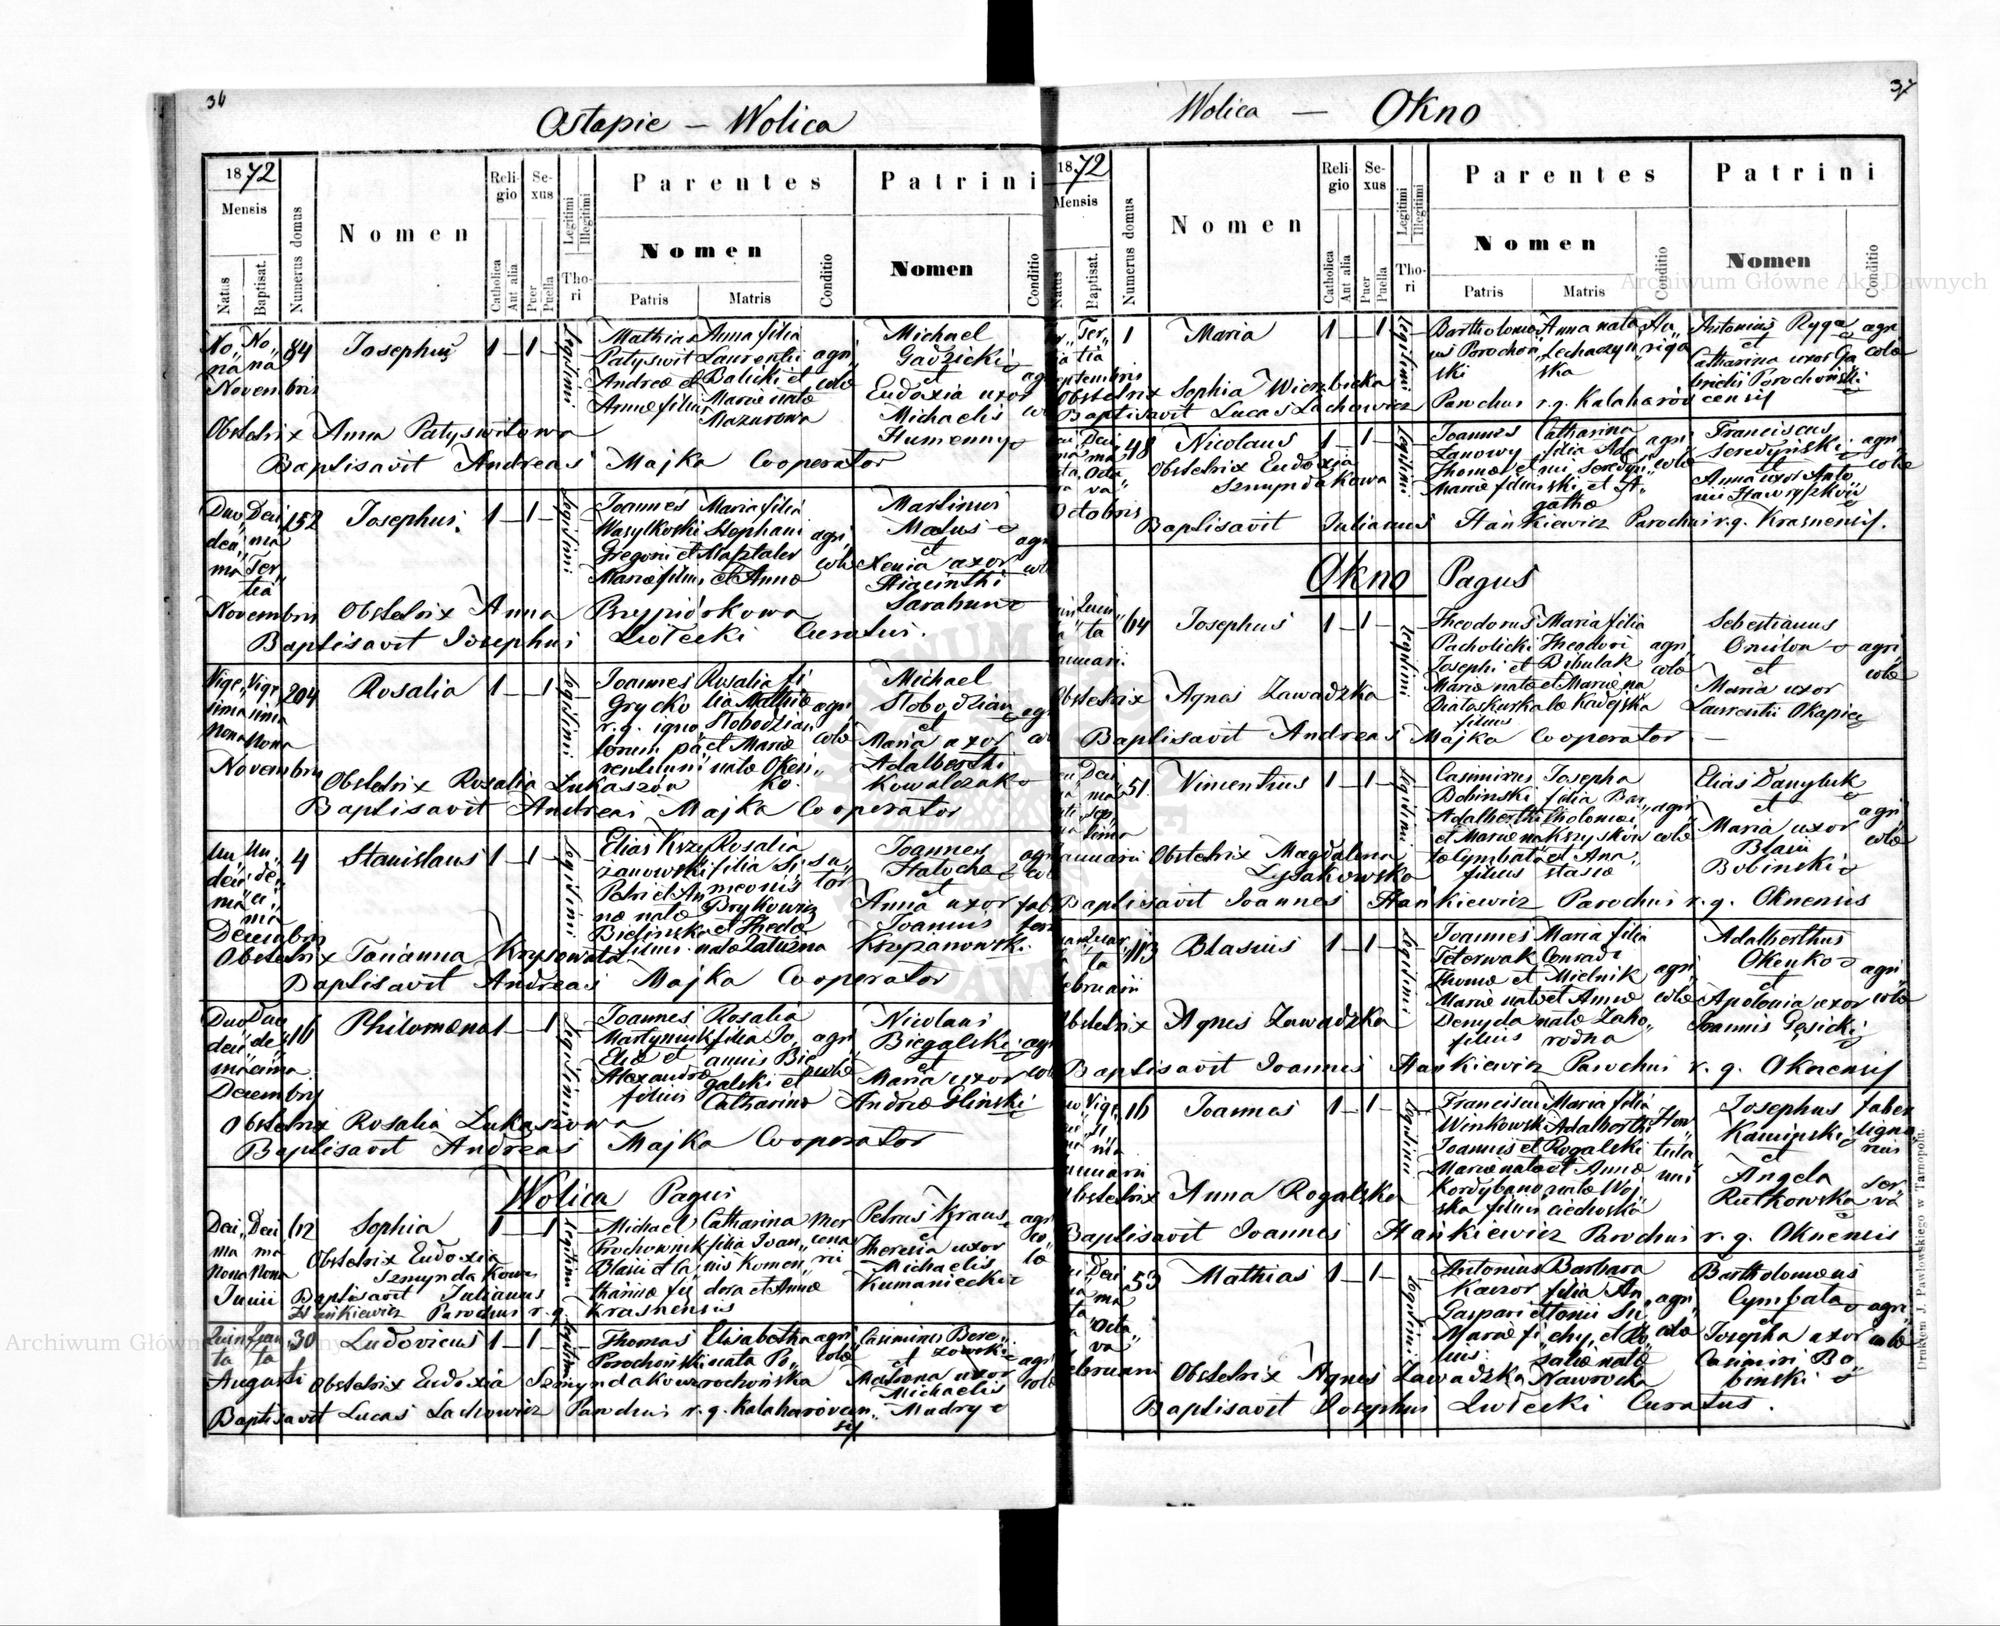 36
Ostapie – Wolica
1872
Mensis
Natus
Baptisat.
Numerus domus
Nomen
Religio
Catholica
Aut alia
Sexus
Puer
Puella
Legitimi
Illegitimi
Thori
Parentes
Nomen
Patris
Matris
Conditio
Patrini
Nomen
Conditio
Nona Nona Novembris 84 Josephus 1 – 1 – Legitimi
Mathias Patyswit Andreæ et Annæ filius
Anna filia Laurentii Balicki et Mariæ natæ Mazurowa
agricolæ
Michael Gadzicki et Eudoxia uxor Michaelis Humenny
Obstetrix Anna Patyswitowa
Baptisavit Andreas Majka Cooperator
Duodecima Decima Tertia Novembris 152 Josephus 1 – 1 – Legitimi
Joannes Wasylkoski Gregorii et Mariæ filius
Maria filia Stephani Masztaler et Annæ
agricolæ
Martinus Matus et Xenia uxor Hiacinthi Sarahun
Obstetrix Anna Brzpiórkowa
Baptisavit Josephus Lwlecki Curatus.
Vigesima nona Vigesima Nona Novembris 204 Rosalia 1 – – 1 Legitimi
Joannes Grycko r. g. ignotorum parentum
Rosalia filia Mathiæ Slobodzian et Mariæ natæ
agricolæ
Michael Slobodzian et Maria uxor Adalberthi Kowalczak
Obstetrix Rosalia Lukaszów
Baptisavit Andreas Majka Cooperator
Undecima Undecima Decembris 4 Stanislaus 1 – 1 – Legitimi
Elias Krzyżanowski Petri et Annæ natæ Bielinska filius
Rosalia filia Simeonis Brykowicz et Theclæ natæ Zatuzna
sutor
Joannes Hatocha et Anna uxor Joannis Krzyzanowski
Obstetrix Tacianna Krysowata
Baptisavit Andreas Majka Cooperator
Duodecima Duodecima Decembris 16 Philomena 1 – – 1 Legitimi
Joannes Martyniuk Eliæ et Alexandræ filius
Rosalia filia Joannis Biegalski et Catharinæ
agricolæ
Nicolaus Biegalski et Maria uxor Andreæ Glinski
Obstetrix Rosalia Lukaszowa
Baptisavit Andreas Majka Cooperator
Wolica Pagus
Decima Nona Decima Nona Junii 112 Sophia 1 – – 1 Legitimi
Michael Prochownik Blasii et Catharinæ filius
Catharina filia Joannis Komendora et Annæ
mercenarii
Petrus Kraus et Theresia uxor Michaelis Kumaniecki
agricolæ
Obstetrix Eudoxia Szmyndakowa
Baptisavit Julianus Hankiewicz Parochus r. g. Krasnensis
Quinta Quinta Augusti 30 Ludovicus 1 – 1 – Legitimi
Thomas Porochoński
Elisabetha nata Porochońska
agricolæ
Casimirus Berezowski et Matrona uxor Michaelis Mudry
agricolæ
Obstetrix Eudoxia Szmyndakowa
Baptisavit Lucas Lachowicz Parochus r. g. Kalaharóvcensis
37
Wolica – Okno
1872
Mensis
Natus
Baptisat.
Numerus domus
Nomen
Religio
Catholica
Aut alia
Sexus
Puer
Puella
Legitimi
Illegitimi
Thori
Parentes
Nomen
Patris
Matris
Conditio
Patrini
Nomen
Conditio
Tertia Septembris 1 Maria 1 – – 1 Legitimi
Bartholomæus Porochoński
Anna nata Lechaczyńska
Antonius Ryga et Catharina uxor Gabrielis Porochoński
agricolæ
Obstetrix Sophia Wierzbicka
Baptisavit Lucas Lachowicz Parochus r. g. Kalaharóvcensis
Decima Octava Octobris 48 Nicolaus 1 – 1 – Legitimi
Joannes Zanowy Thomæ et Mariæ filius
Catharina filia Adami Seredyński et Agathæ
agricolæ
Franciscus Seredyński et Anna uxor Antonii Hawryszków
agricolæ
Obstetrix Eudoxia Szmyndakowa
Baptisavit Julianus Hankiewicz Parochus r. g. Krasnensis.
Okno Pagus
Quinta Januarii 64 Josephus 1 – 1 – Legitimi
Theodorus Pacholicki Josephi et Mariæ natæ Białoskurska filius
Maria filia Theodori Bihulak et Mariæ natæ Kadejska
agricolæ
Sebestianus Onitwa et Maria uxor Laurentii Okapiec
agricolæ
Obstetrix Agnes Zawadzka
Baptisavit Andreas Majka Cooperator –
Decima Septima Januarii 51 Vincentius 1 – 1 – Legitimi
Casimirus Bobinski Adalberthi et Mariæ natæ Cymbata filius
Josepha filia Bartholomæi Krzyśków et Anastasiæ
agricolæ
Elias Danyluk et Maria uxor Blasii Bobinski
agricolæ
Obstetrix Magdalena Lysakowska
Baptisavit Joannes Hankiewicz Parochus r. g. Oknensis
Quarta Februarii 113 Blasius 1 – 1 – Legitimi
Joannes Teterwak Thomæ et Mariæ natæ Denyda filius
Maria filia Conradi Mielnik et Annæ natæ Zahorodna
agricolæ
Adalberthus Okenko et Apolonia uxor Joannis Gęsicki
agricolæ
Obstetrix Agnes Zawadzka
Baptisavit Joannes Hankiewicz Parochus r. g. Oknensis
Januarii 16 Joannes 1 – 1 – Legitimi
Franciscus Winkowski Joannis et Mariæ natæ Kordybanowska filius
Maria filia Adalberthi Rogalski et Annæ natæ Wojciechoska
Josephus Kamiński et Angela Rutkowska
faber lignarius
serva
Obstetrix Anna Rogalska
Baptisavit Joannes Hankiewicz Parochus r. g. Oknensis
Decima Octava Februarii 53 Mathias 1 – 1 – Legitimi
Antonius Kaczor Gaspari et Mariæ filius
Barbara filia Antonii Suchy, et Rosaliæ natæ Nawrocka
agricolæ
Bartholomæus Cymbata et Josepha uxor Casimiri Bobinski
agricolæ
Obstetrix Agnes Zawadzka
Baptisavit Josephus Lwlecki Curatus.
Drukiem J. Pawłowskiego w Tarnopolu.
Archiwum Główne Akt Dawnych